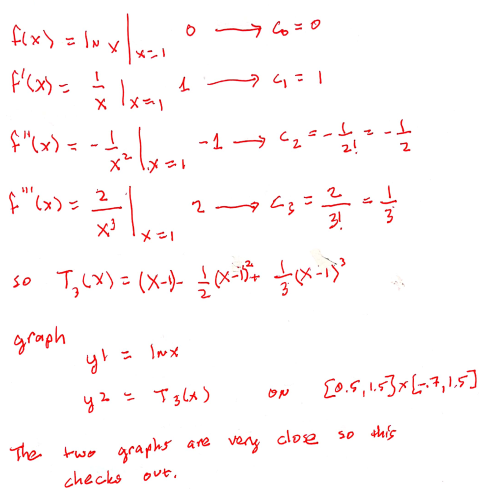 f(x) = ln x |x=1 0 → c₀ = 0
f'(x) = 1/x |x=1 1 → c₁ = 1
f''(x) = -1/x² |x=1 -1 → c₂ = -1/2! = -1/2
f'''(x) = 2/x³ |x=1 2 → c₃ = 2/3! = 1/3
so T₃(x) = (x-1) - 1/2(x-1)² + 1/3(x-1)³
graph
y1 = lnx
y2 = T₃(x) on [0.5,1.5]x[-.7,1.5]
The two graphs are very close so this
checks out.